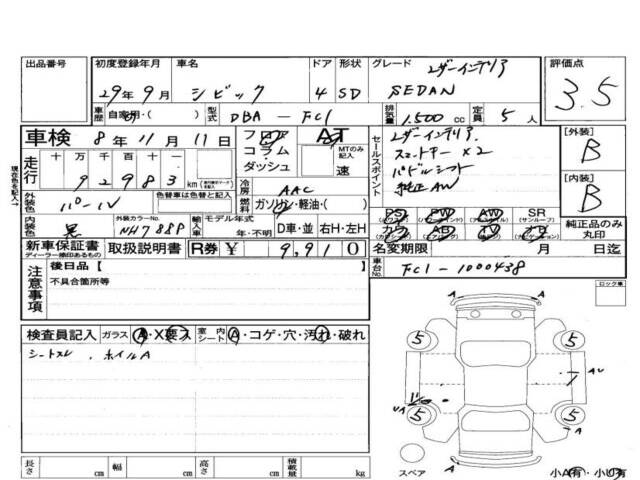 出品番号 初度登録年月 車名 ドア 形状 グレード レザーインテリア 評価点
29年9月 シビック 4 SD SEDAN 3.5
車歴 自家用・( ) 型式 DBA-FC1 排気量 1,500 cc 定員 5人
車検 8年11月11日 フロア AT セールスポイント レザーインテリア [外装]
走行 十万千百十一 コラム MTのみ記入 スマートキー×2 B
92983 km ダッシュ 速 パドルシフト
現在色を記入→ 冷房 AAC 純正AW [内装]
外装色 パール 色替車は色替と記入 燃料 ガソリン・軽油・( ) PS PW AW SR (サンルーフ) B
内装色 黒 外装カラーNo. NH788P 輸入車 モデル年式 年・不明 D車・並 右H・左H カワ AB TV ナビ 純正品のみ丸印
新車保証書 ディーラー捺印あるもの 取扱説明書 R券 ¥ 9,910 名変期限 月 日迄
注意事項 後日品 [ ] 車台No. FC1-1000438
不具合箇所等 ロック車
検査員記入 ガラス A・X要・ス 室内シート A・コゲ・穴・汚れ・破れ
シートスレ . ホイルA
5 5
AU
UA 5 5
長さ cm 幅 cm 高さ cm 積載量 kg
スペア 小A有・小U有